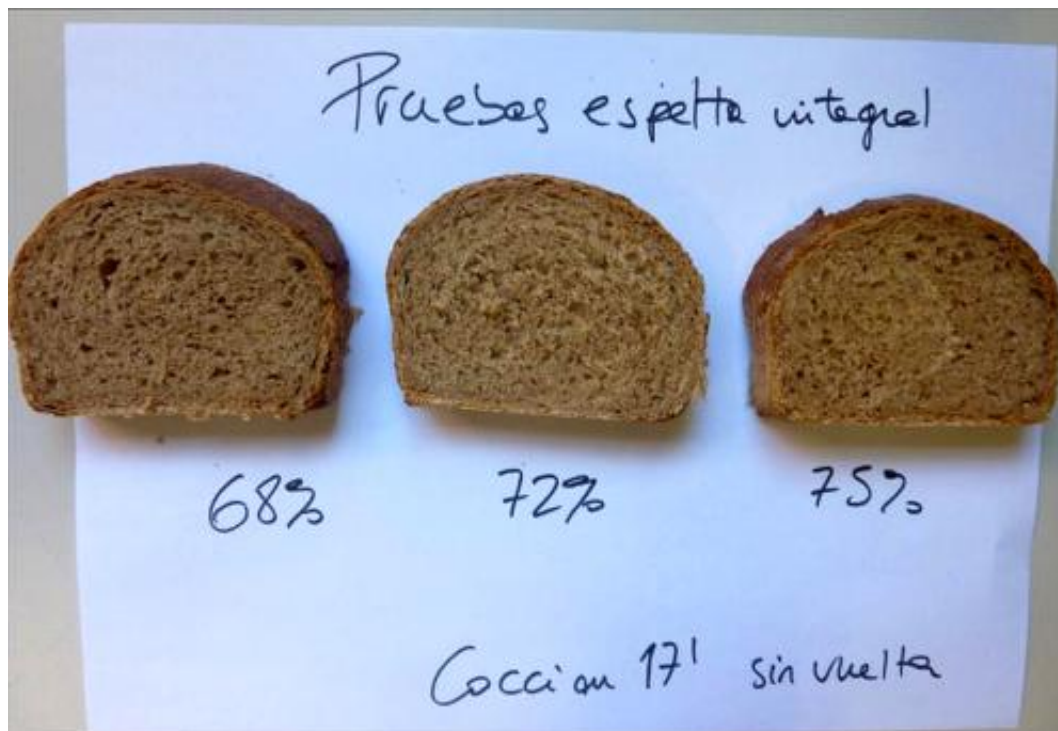 Pruebas espelta integral
68% 72% 75%
Coccion 17' sin vuelta